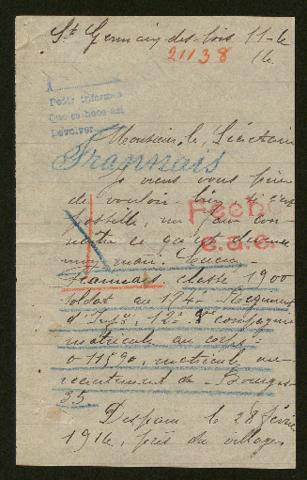 St Germain des-bois 11-6
16
21138
Pedir informes
Que se hace est
Devolver
Monsieur le Secrétaire
Frannais
Je viens vous prier
de vouloir bien si c'est
possible me faire con-
Fecho
naître ce qu'est devenu
c.a.e.
mon mari Lucien
Frannais classe 1900
soldat au 174e Régiment
d'Inf. 12e Compagnie
matricule au corps:
011590, matricule au
recrutement de Bourges
35
Disparu le 28 février
1916, près du village